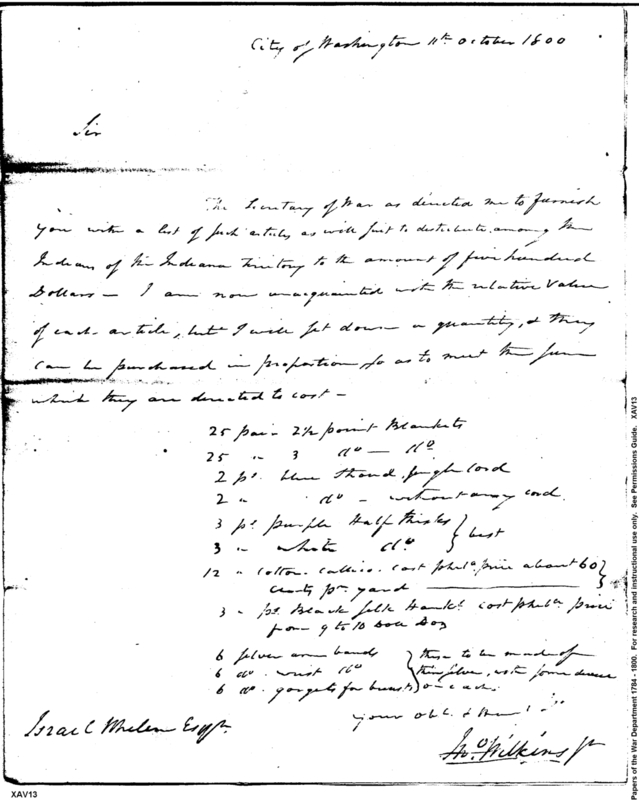 City of Washington 11th October 1800
Sir
The Secretary of War as directed me to furnish
you with a list of such articles as will suit to distribute among the
Indians of the Indiana Territory to the amount of five hundred
Dollars — I am now unacquainted with the relative Value
of each article, but I will set down a quantity, & they
can be purchased in proportion, so as to meet the sum
which they are directed to cost —
25 pair 2½ point Blankets
25 " 3 do — do
2 ps. blue Stroud single cord
2 " do - without any cord.
3 ps. purple Half thicks
3 " white do. } best
12 " cotton callico. cost phila. price about 60
cents pr. yard
3 " ps. Black silk Hankf. cost phila. price
from 9 to 10 Doll Doz
6 silver arm bands } these to be made of
6 do. wrist do } thin silver, with some device
6 do. gorgets for breasts } on each.
your Obt. &
Israel Whelen Esqr.
Jno. Wilkins Jr
XAV13
Papers of the War Department 1784 - 1800. For research and instructional use only. See Permissions Guide. XAV13